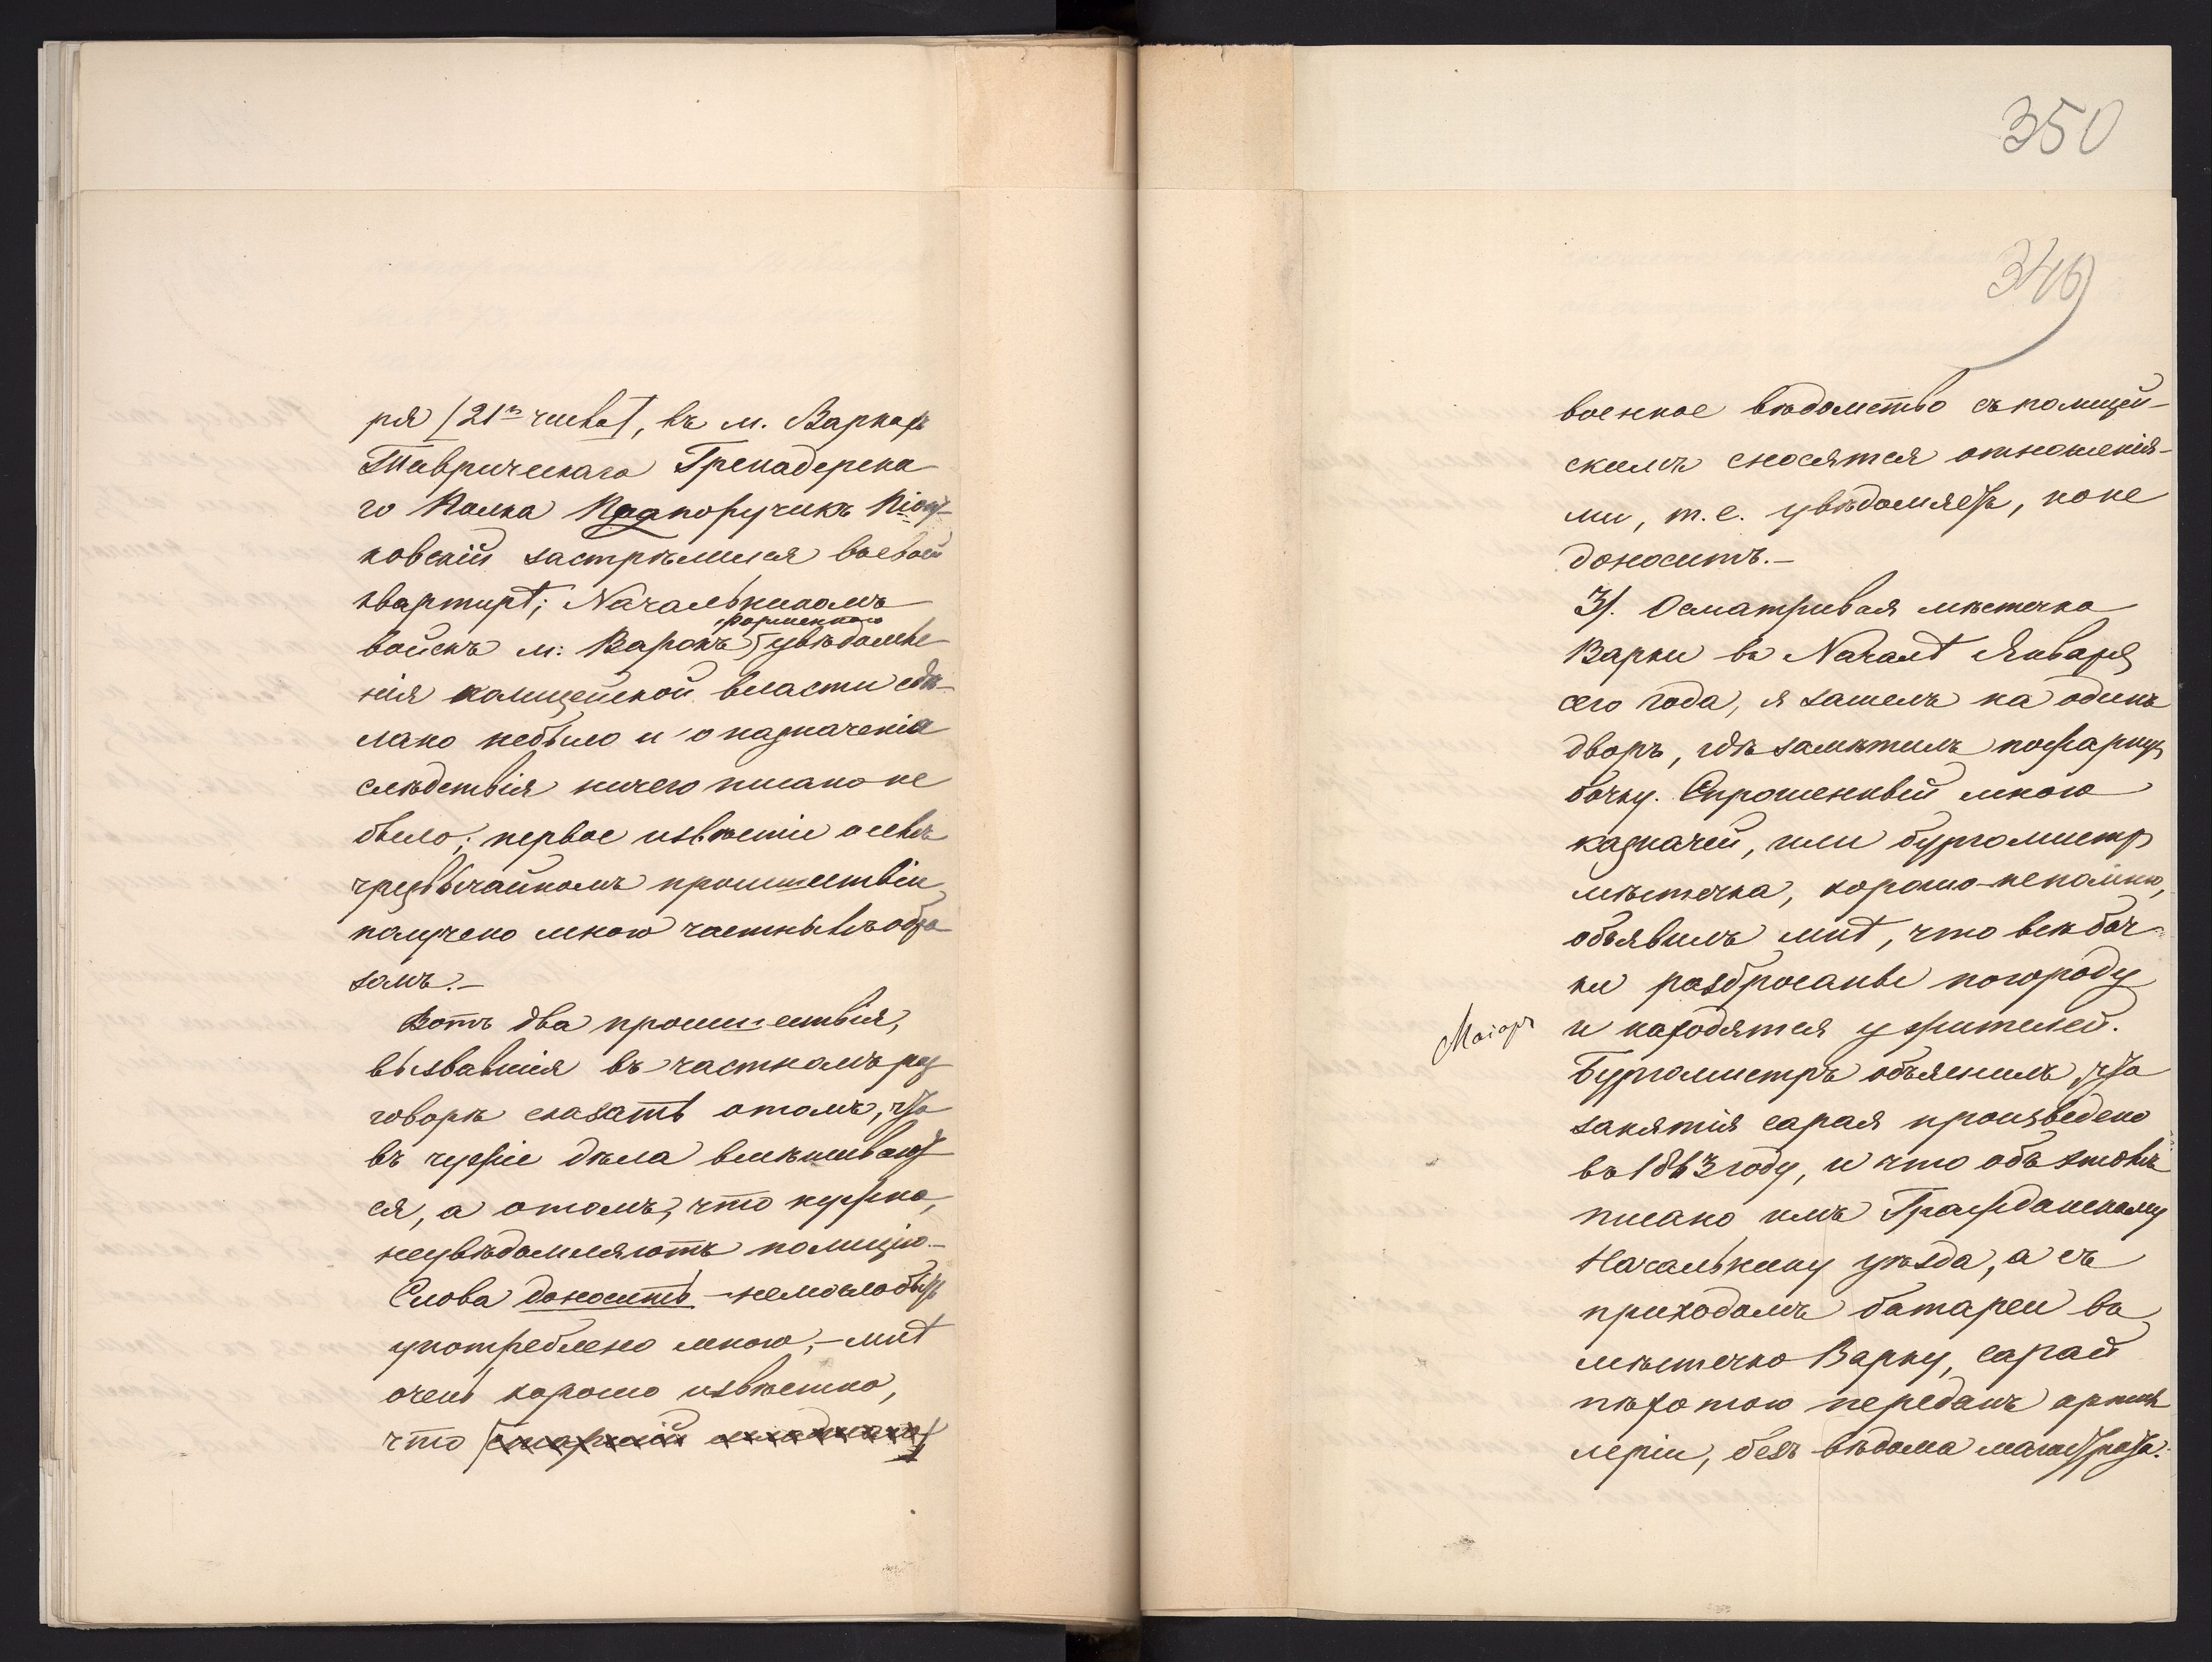 ря /21го числа/, въ м. Варкахъ
Таврическаго Гренадерска
го Полка Подпоручикъ
ковскій застрѣлился въ своей
квартирѣ; Начальникомъ
форменного
войскъ м: Варокъ, увѣдомле-
нія полицейской власти сдѣ-
лано небыло и о назначеніи
слѣдствія ничего писано не
было; первое извѣстіе о семъ
чрезвычайномъ происшествіи
получено мною частнымъ обра
зомъ.—
Вотъ два происшествія,
вызвавшія въ частномъ раз
говорѣ сказать отомъ, что
въ чужіе дѣла вмѣшивают
ся, а отомъ, что нужно,
неувѣдомляютъ полицію.—
Слова доносить — немогло быть
употреблено мною,— мнѣ
очень хорошо извѣстно,
что
350
349
военное вѣдомство съ полицей-
скимъ сносятся отношенія-
ми, т. е. увѣдомляетъ, но не
доноситъ.—
3/. Осматривая мѣстечко
Варки въ Началѣ Января
сего года, я зашелъ на одинъ
дворъ, гдѣ замѣтилъ пожарную
бочку. Спрошенный мною
казначей, или бургомистр
мѣстечка, хорошо непомню,
объявилъ мнѣ, что всѣ боч-
ки разбросаны погороду
и находятся ужителей.
Маіоръ
Бургомистръ объяснилъ, что
занятія сарая произведено
въ 1863 году, и что объ этомъ
писано имъ Гражданскому
Начальнику уѣзда, а съ
приходомъ батареи въ
мѣстечко Варку, сарай
пѣхотою переданъ артил
леріи, безъ вѣдома магистрата.